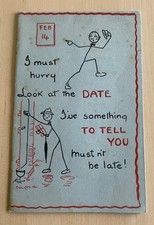 FEB
14
I must
hurry
Look at the DATE
I've something
TO TELL
YOU
mustn't
be late!